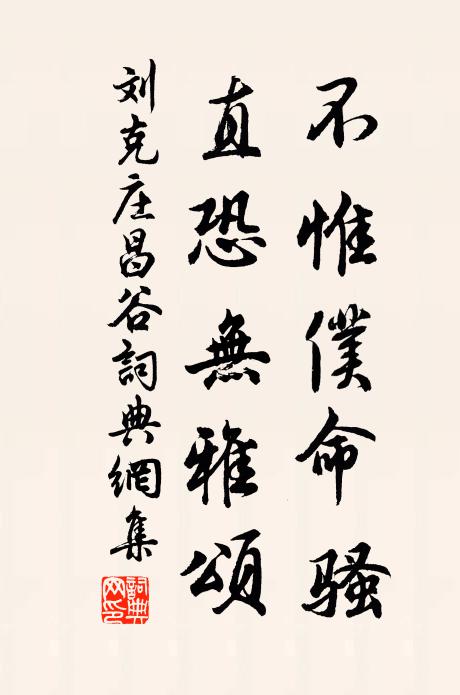 不惟僕命騷
直恐無雅頌
刘克庄昌谷詞典網集
詞典网印